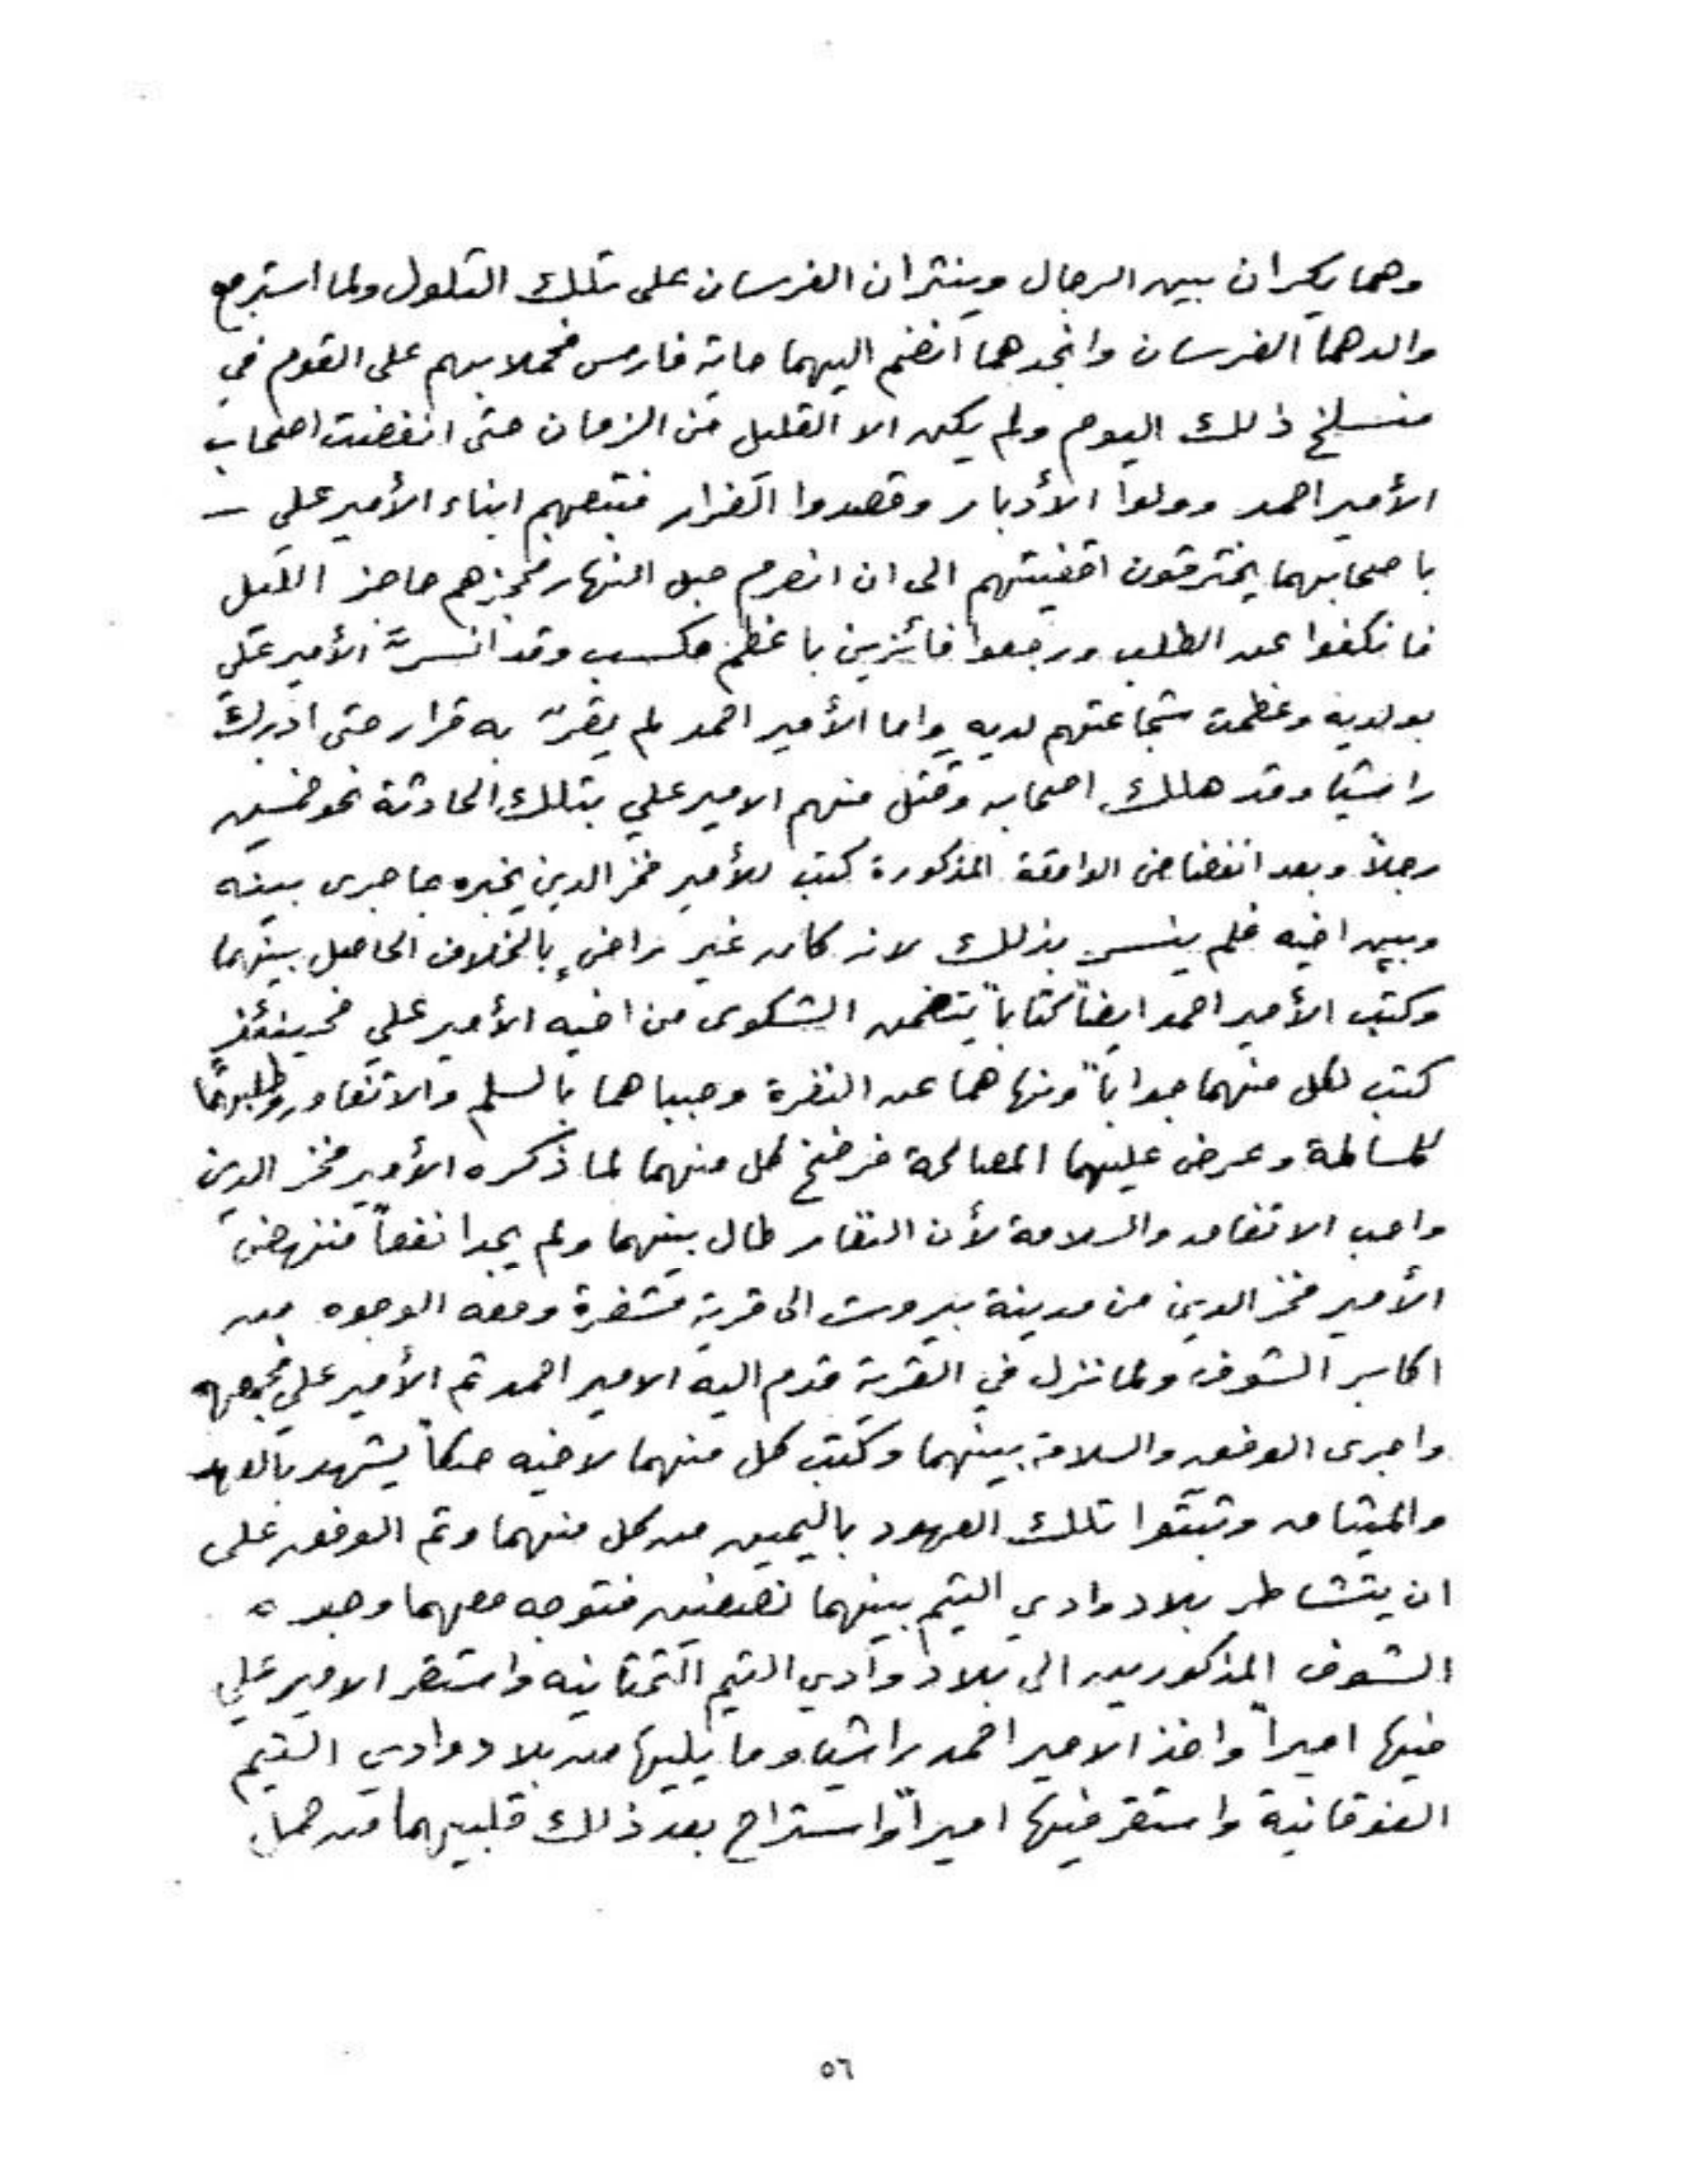 وهما يكران بين الرجال وينثران الفرسان على تلك التلول ولما استرجع
والدهما الفرسان وانجدهما انضم اليهما ماية فارس فحملا بهم على القوم في
منسلخ ذلك اليوم ولم يكن الا القليل من الزمان حتى انفضت اصحاب
الأمير احمد وولوا الأدبار وقصدوا الفرار فتبعهم ابناء الأمير علي –
باصحابهما يخترقون اقفيتهم الى ان انصرم حبل النهار فحجزهم حاجز الليل
فانكفوا عن الطلب ورجعوا فائزين باعظم مكسب وقد انسرَّ الأمير علي
بولديه وعظمت شجاعتهم لديه واما الأمير احمد لم يقرّ به قرار حتى ادرك
راشيا وقد هلك اصحابه وقتل منهم الامير علي بتلك الحادثة نحو خمسين
رجلاً وبعد انفضاض الواقعة المذكورة كتب للأمير فخر الدين يخبره بما جرى بينه
وبين اخيه فلم ينسر بذلك لانه كان غير راضٍ بالخلاف الحاصل بينهما
وكتب الأمير احمد ايضاً كتاباً يتضمن الشكوى من اخيه الأمير علي فحينئذٍ
كتب لكل منهما جواباً ونهاهما عن النفرة وحبباهما بالسلم والاتفاق وطلبهما
للمسالمة وعرض عليهما المصالحة فرضخ كل منهما لما ذكره الأمير فخر الدين
واحب الاتفاق والسلامة لأن النقار طال بينهما ولم يجدا نفعاً فنهض
الأمير فخر الدين من مدينة بيروت الى قرية مشغرة ومعه الوجوه من
اكابر الشوف ولما نزل في القرية قدم اليه الامير احمد ثم الأمير علي فجمعهم
واجرى الوفق والسلامة بينهما وكتب كل منهما لاخيه صكاً يشهد بالعهد
والميثاق وثبتوا تلك العهود باليمين من كل منهما وتم الوفق على
ان يتشاطر بلاد وادي التيم بينهما نصفين فتوجه معهما وجوه
الشوف المذكورين الى بلاد وادي التيم التحتانيه واستقر الامير علي
فيها اميراً واخذ الامير احمد راشيا وما يليها من بلاد وادي التيم
الفوقانية واستقر فيها اميراً واستراح بعد ذلك قلبيهما من حمل
٥٦